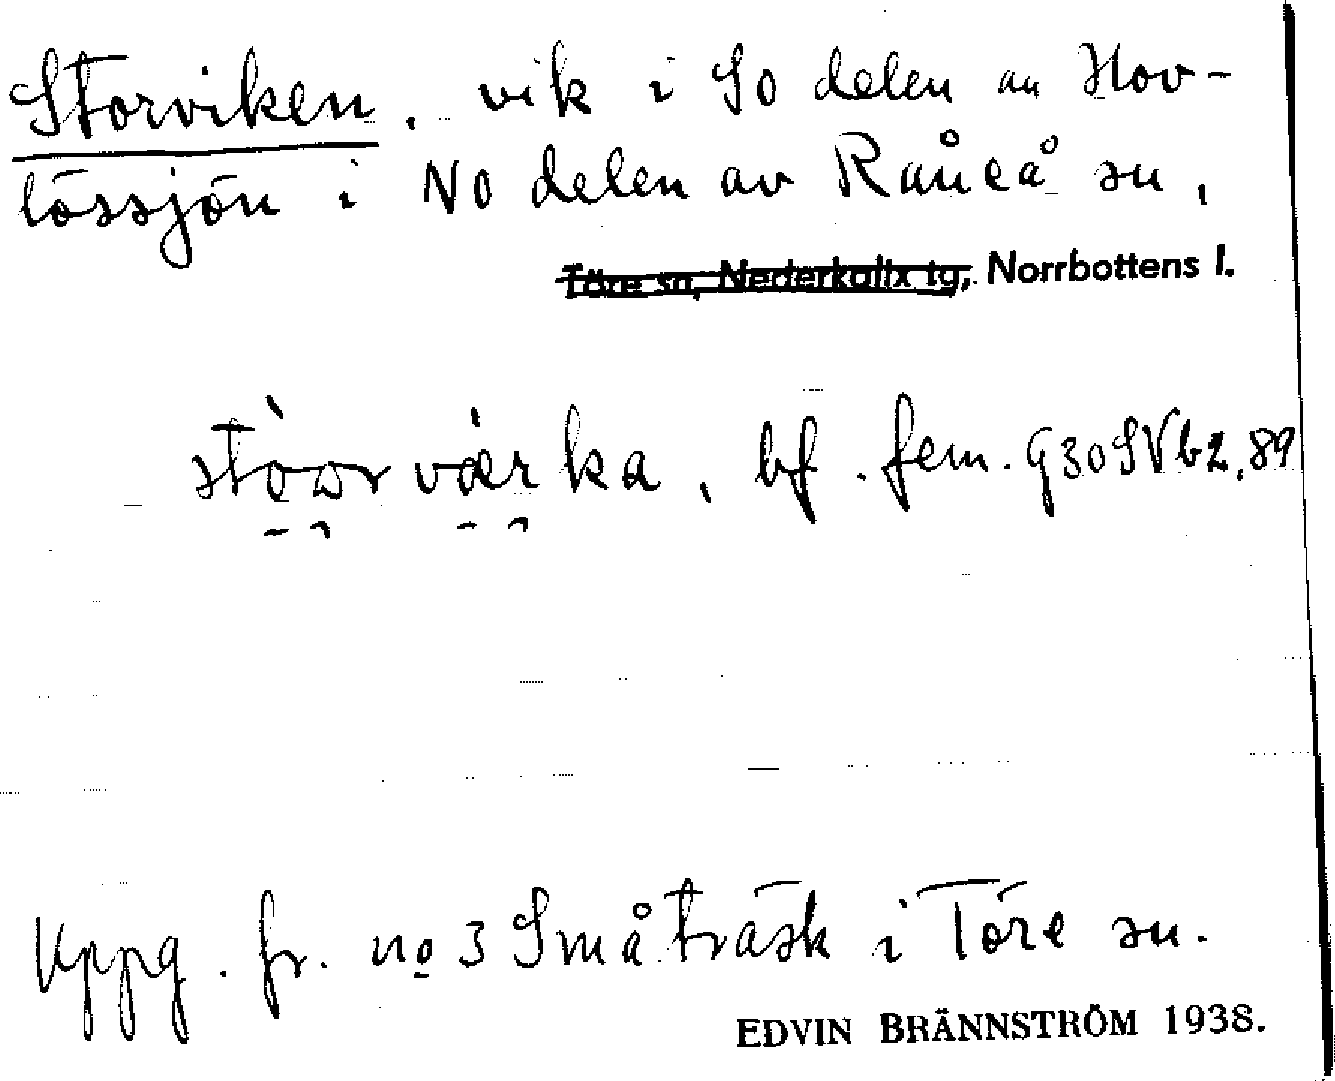 Storviken, vik i SO delen av Hov-
lössjön i NO delen av Råneå sn,
Töre sn, Nederkalix tg, Norrbottens l.
stòωrvàrka, bf. fem. G30SVb2,89
Uppg. fr. no 3 Småträsk i Töre sn.
EDVIN BRÄNNSTRÖM 1938.